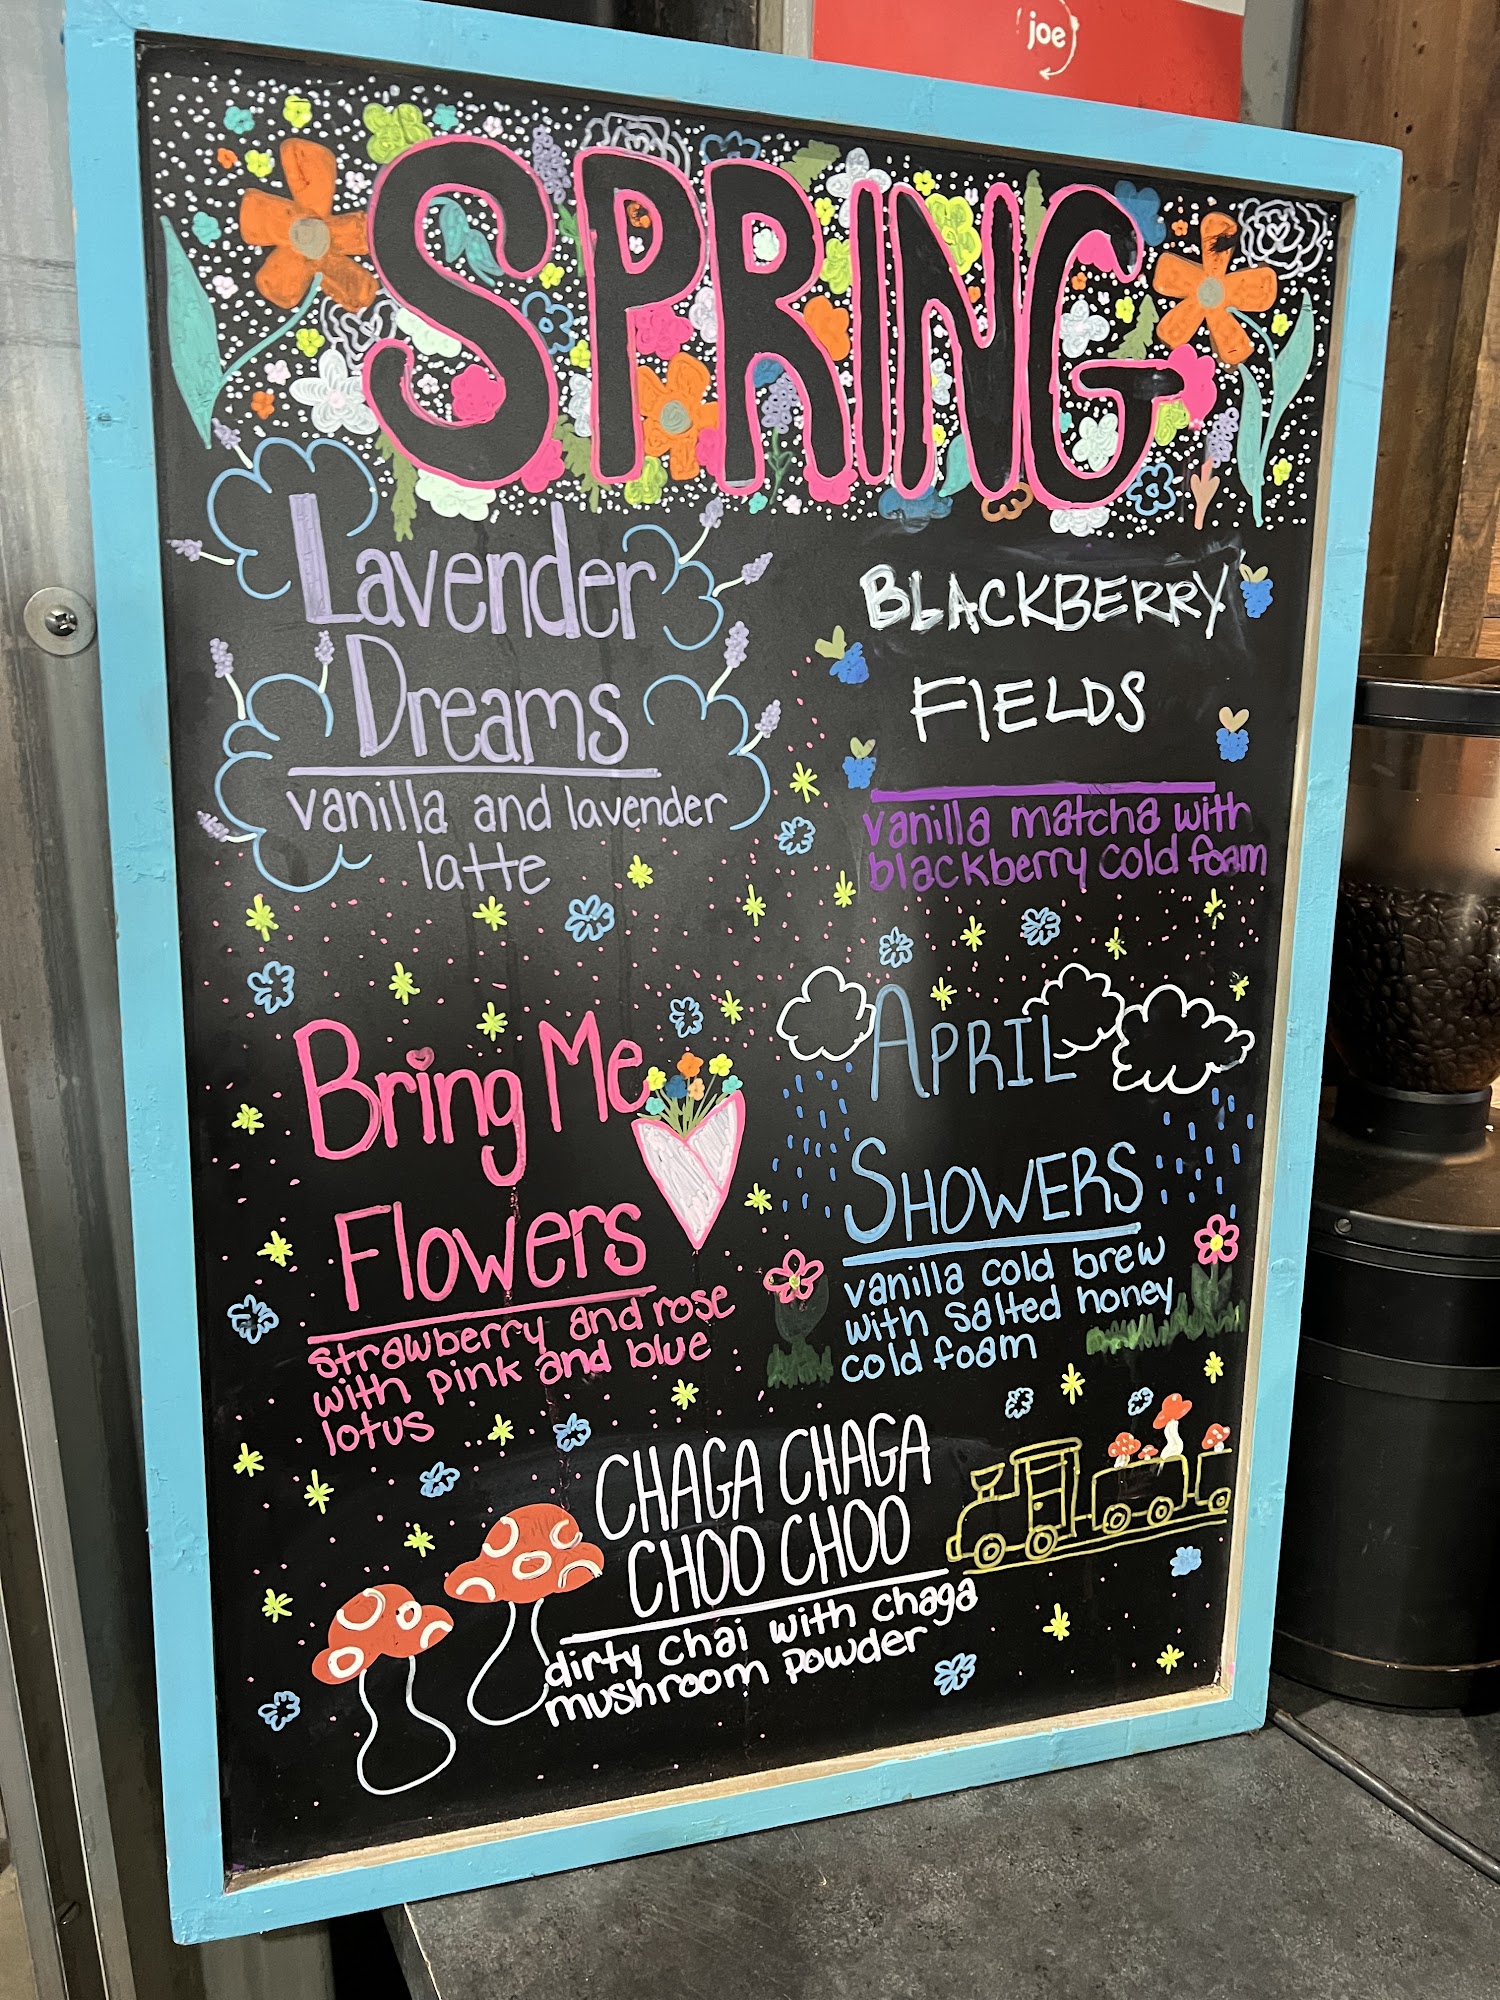 joe
SPRING
Lavender
Dreams
vanilla and lavender
latte
BLACKBERRY
FIELDS
vanilla matcha with
blackberry cold foam
Bring Me
Flowers
strawberry and rose
with pink and blue
lotus
APRIL
SHOWERS
vanilla cold brew
with salted honey
cold foam
CHAGA CHAGA
CHOO CHOO
dirty chai with chaga
mushroom powder